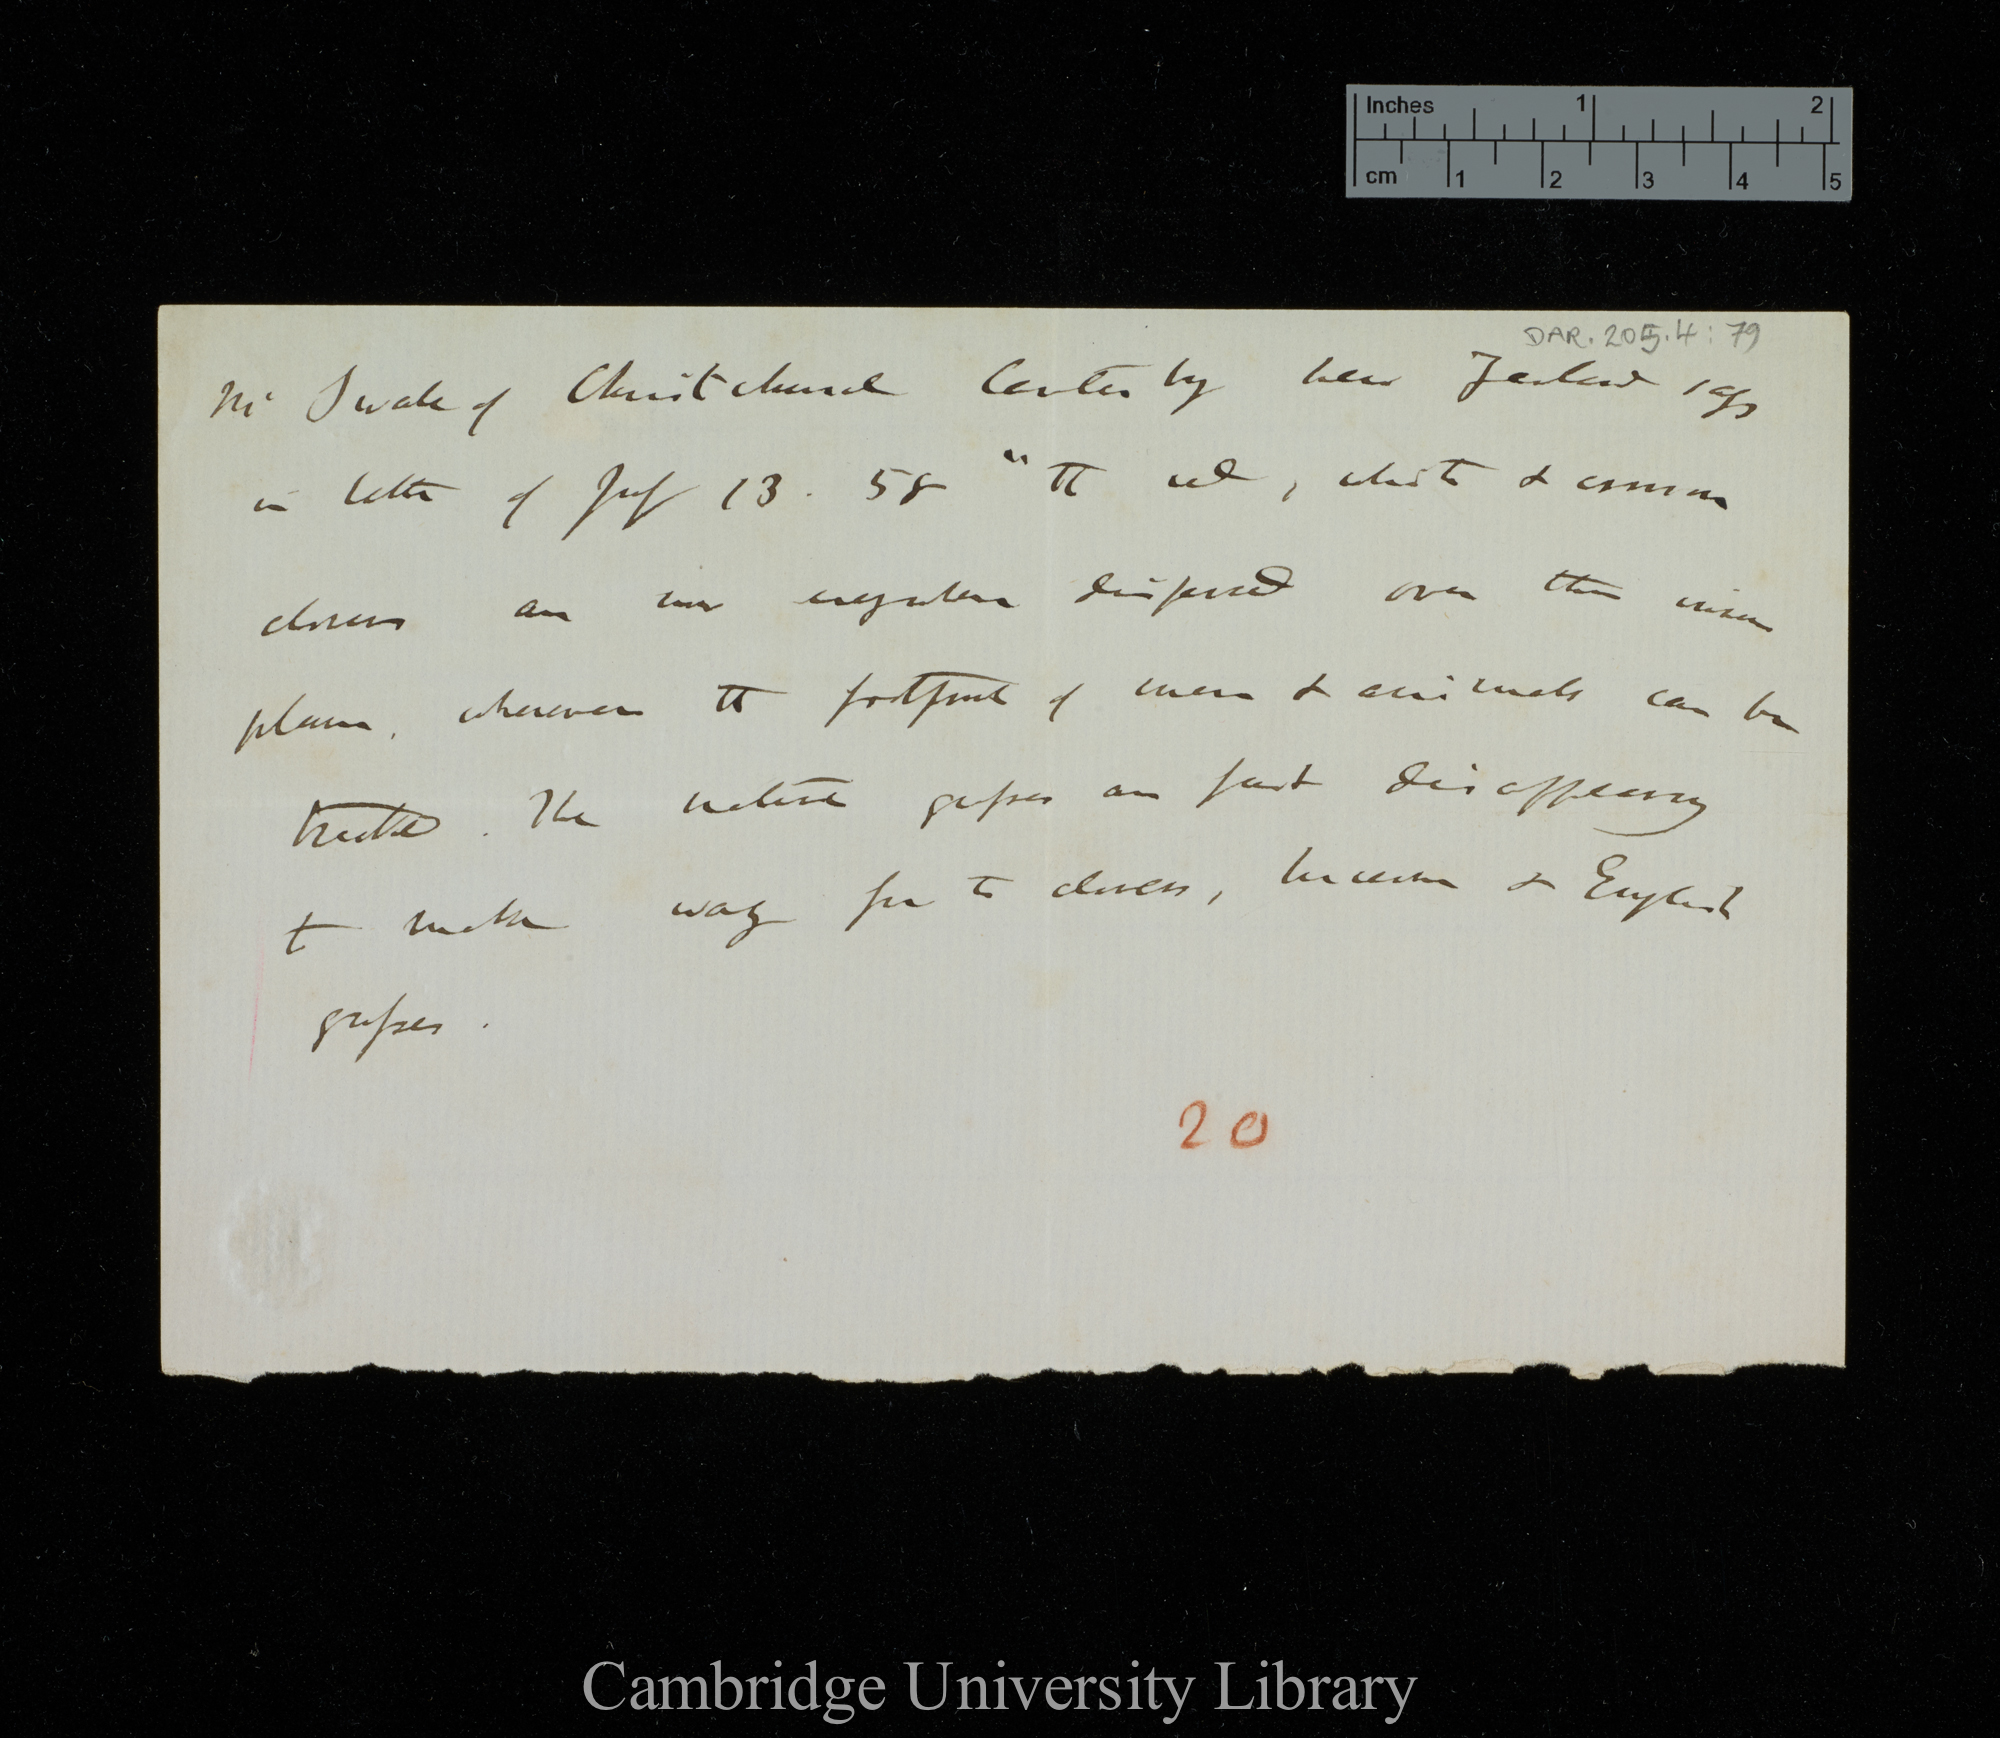 Inches 1 2
cm 1 2 3 4 5
DAR. 205.4: 79
Mr Swale of Christchurch Canterby New Zealand says
in letter of July 13. 58 "the red, white & common
clovers are now dispersed over these
plains, wherever the footprint of men & animals can be
. The native grasses are fast disappearing
to make way for the clovers, lucerne & English
grasses.
20
Cambridge University Library